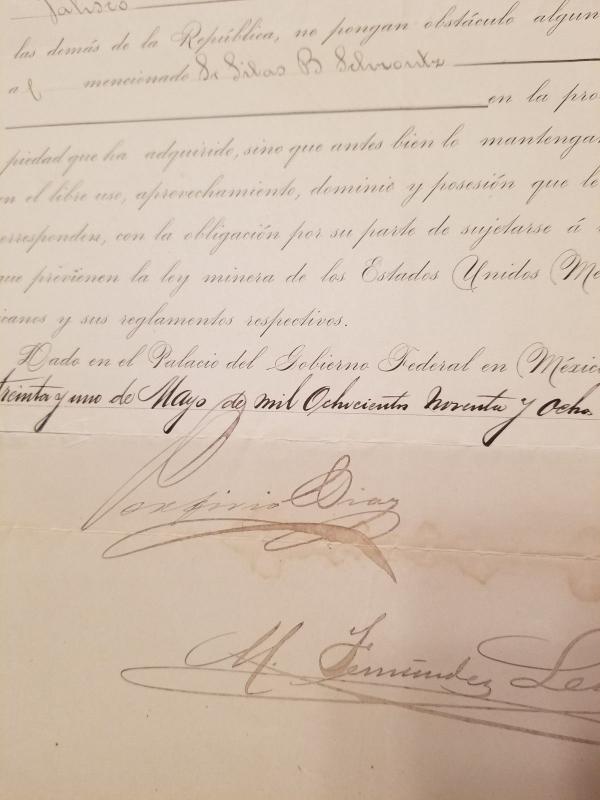 Jalisco
las demás de la República, no pongan obstáculo algun
al mencionado Sr Silas B
en la pro
piedad que ha adquirido, sino que antes bien lo mantengan
en el libre uso, aprovechamiento, dominio y posesión que le
corresponden, con la obligación por su parte de sujetarse á
que previenen la ley minera de los Estados Unidos Me
icanos y sus reglamentos respectivos.
Dado en el Palacio del Gobierno Federal en México
treinta y uno de Mayo de mil Ochocientos noventa y ocho.
Porfirio Diaz
M. Fernández Lea